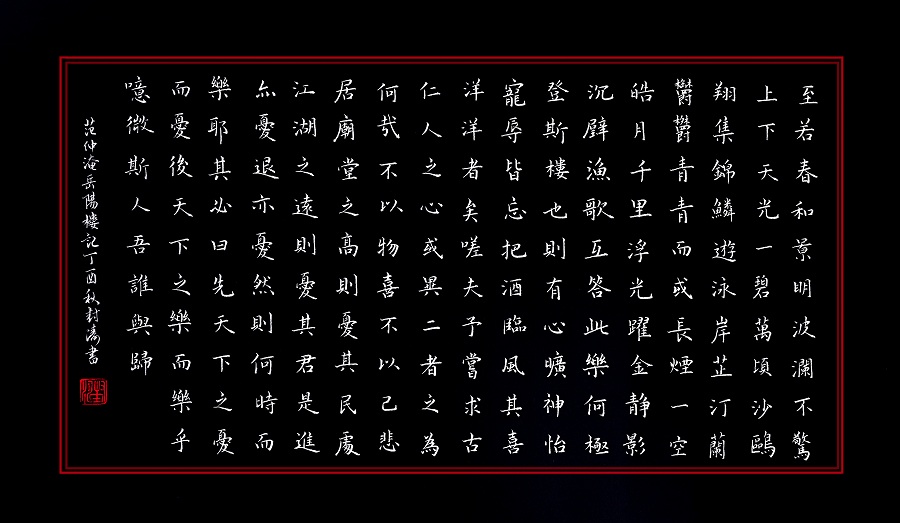 至若春和景明波瀾不驚
上下天光一碧萬頃沙鷗
翔集錦鱗遊泳岸芷汀蘭
欝欝青青而或長煙一空
皓月千里浮光躍金静影
沉璧漁歌互答此樂何極
登斯樓也則有心曠神怡
寵辱皆忘把酒臨風其喜
洋洋者矣嗟夫予嘗求古
仁人之心或異二者之為
何哉不以物喜不以己悲
居廟堂之高則憂其民處
江湖之遠則憂其君是進
亦憂退亦憂然則何時而
樂耶其必曰先天下之憂
而憂後天下之樂而樂乎
噫微斯人吾誰與歸
范仲淹岳陽樓記丁酉秋封濤書